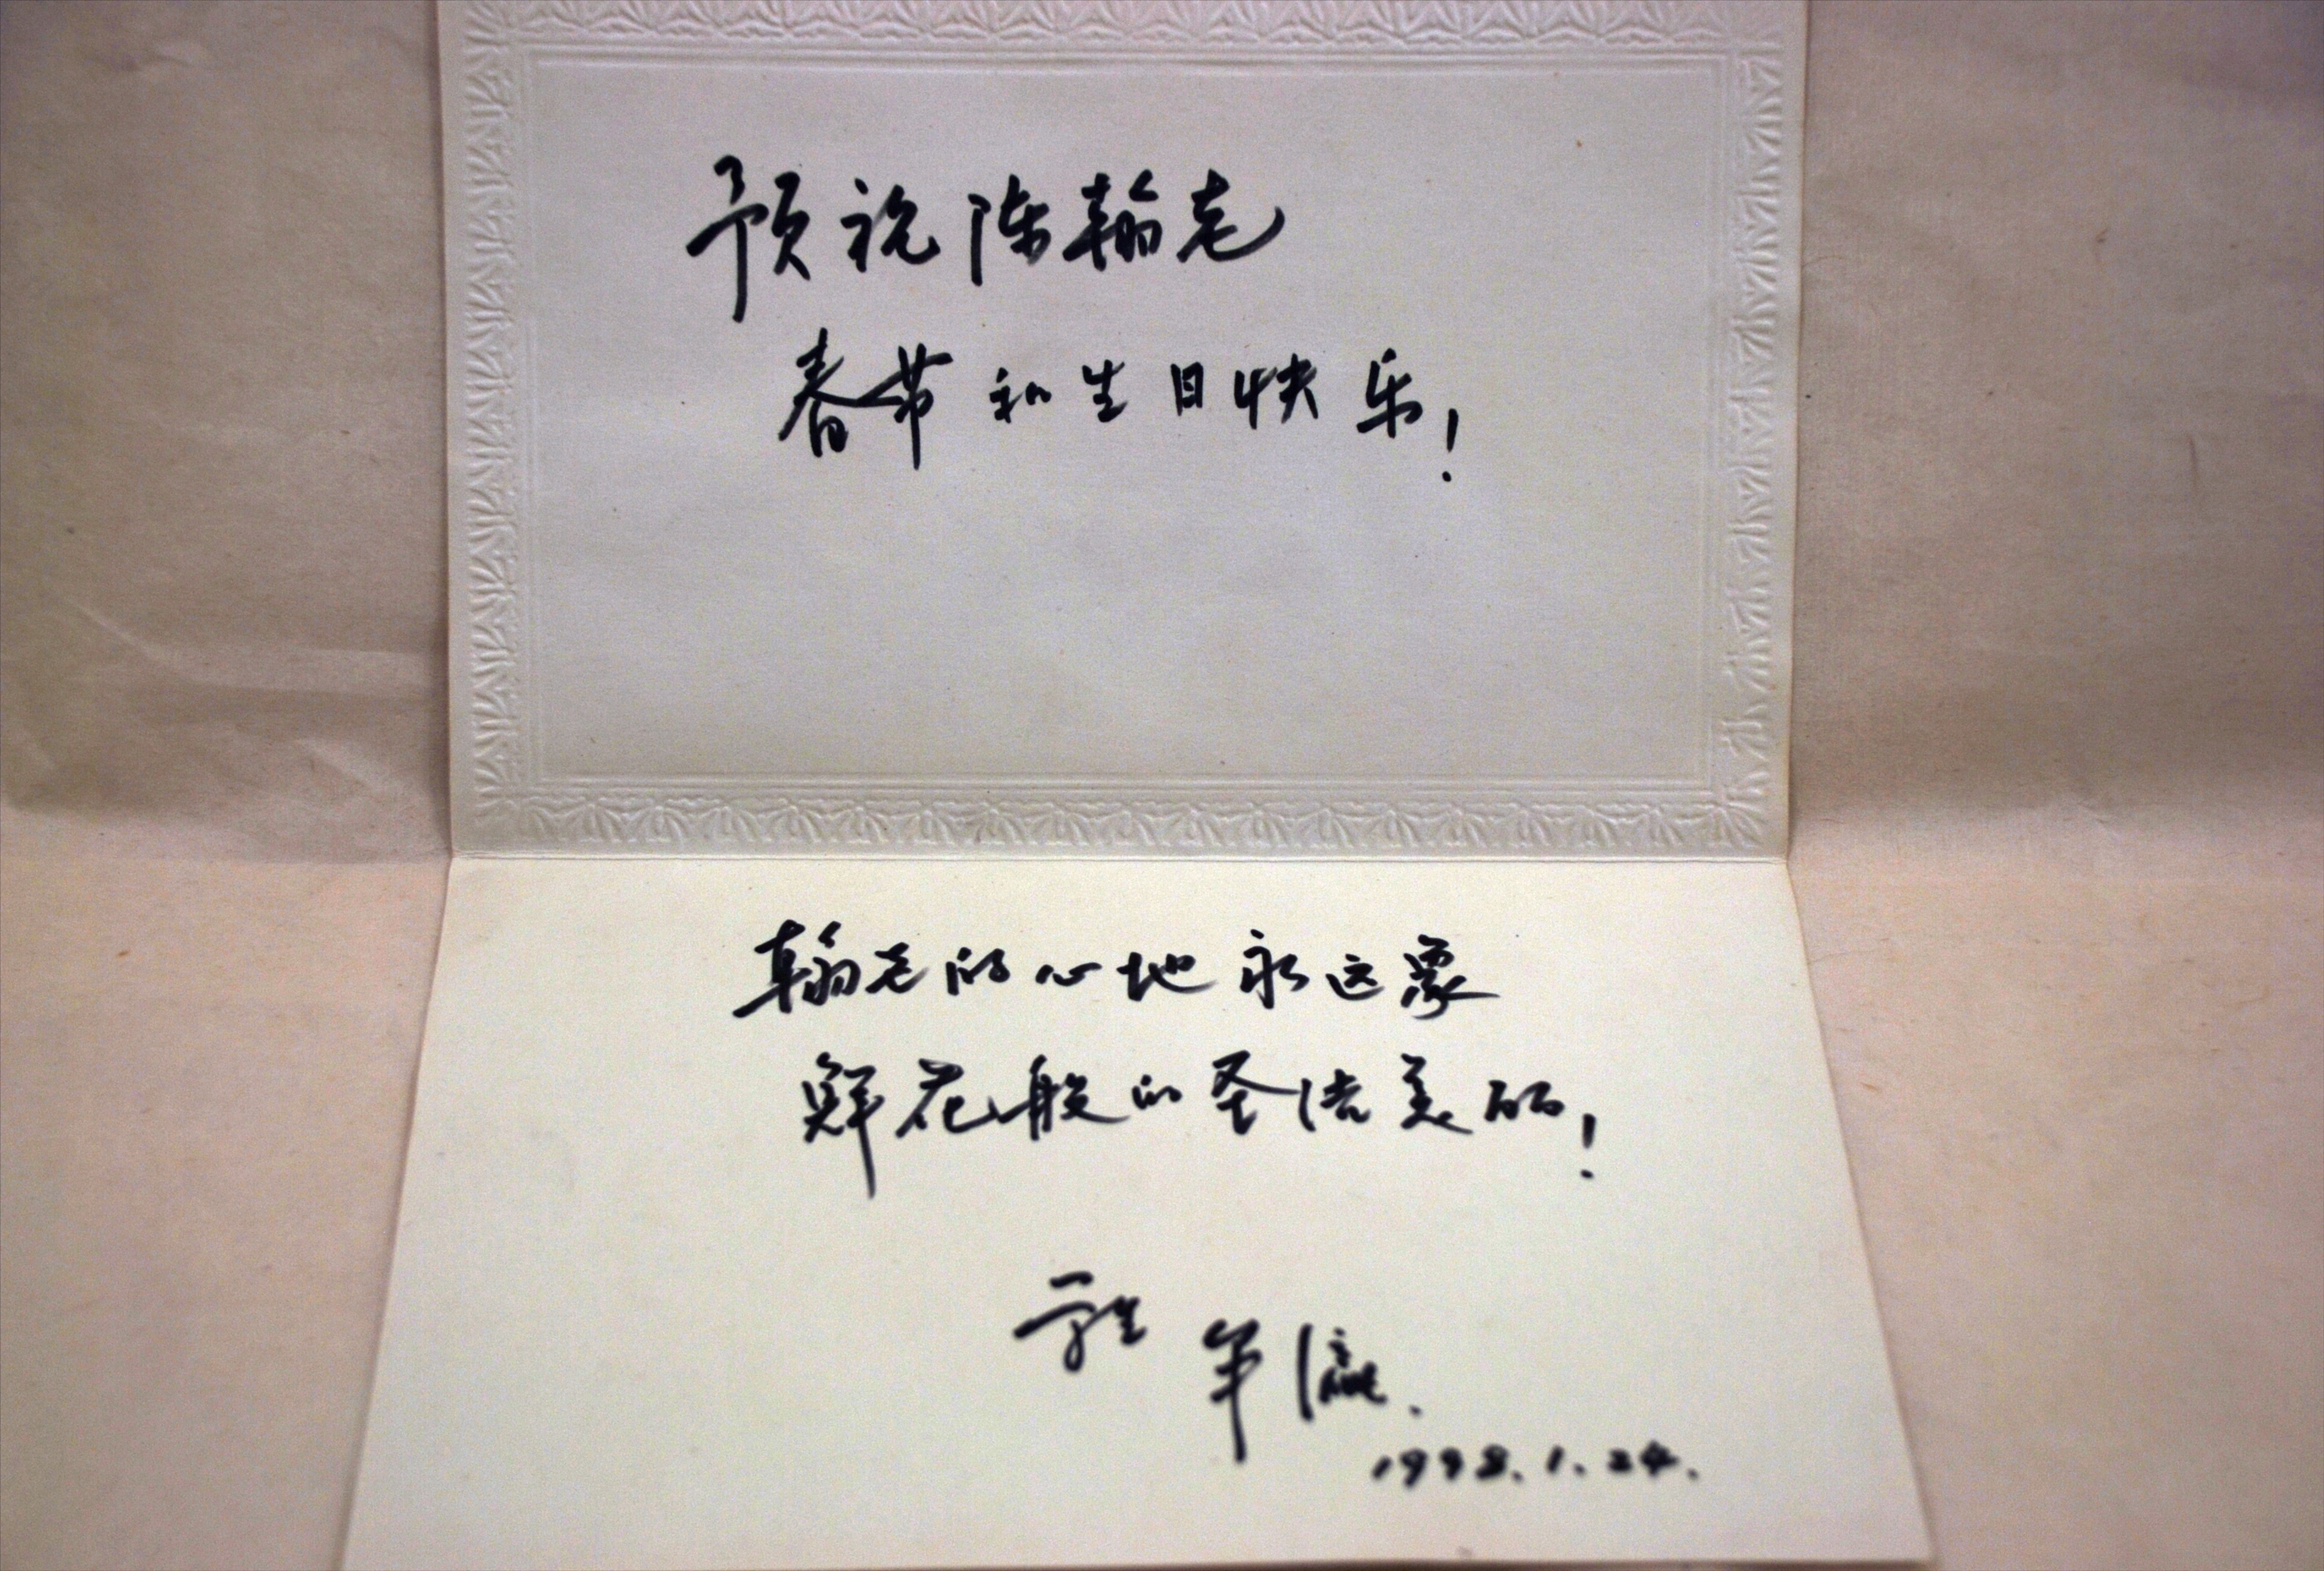 预祝陈翰老
春节和生日快乐！
翰老的心地永远象
鲜花般的圣洁美丽！
学生
1998.1.24.